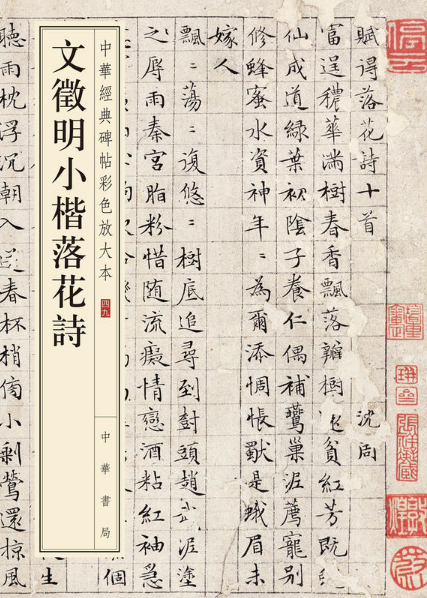 賦得落花詩十首 沈周
富逞穠華滿樹春香飄落瓣樹還貧紅芳既
仙成道綠葉初陰子養仁偶補鶯巢泥薦寵別
修蜂蜜水資神年〻為爾添惆悵是蛾眉未
嫁人
飄〻蕩〻復悠〻樹底追尋到樹頭趙武泥塗
之辱雨秦宮脂粉惜随流癡情戀酒粘紅袖急
個
中華經典碑帖彩色放大本 四九
中華書局
文徵明小楷落花詩
生
聽雨枕浮沉朝入送春杯梢傍小剩鶯還掠風